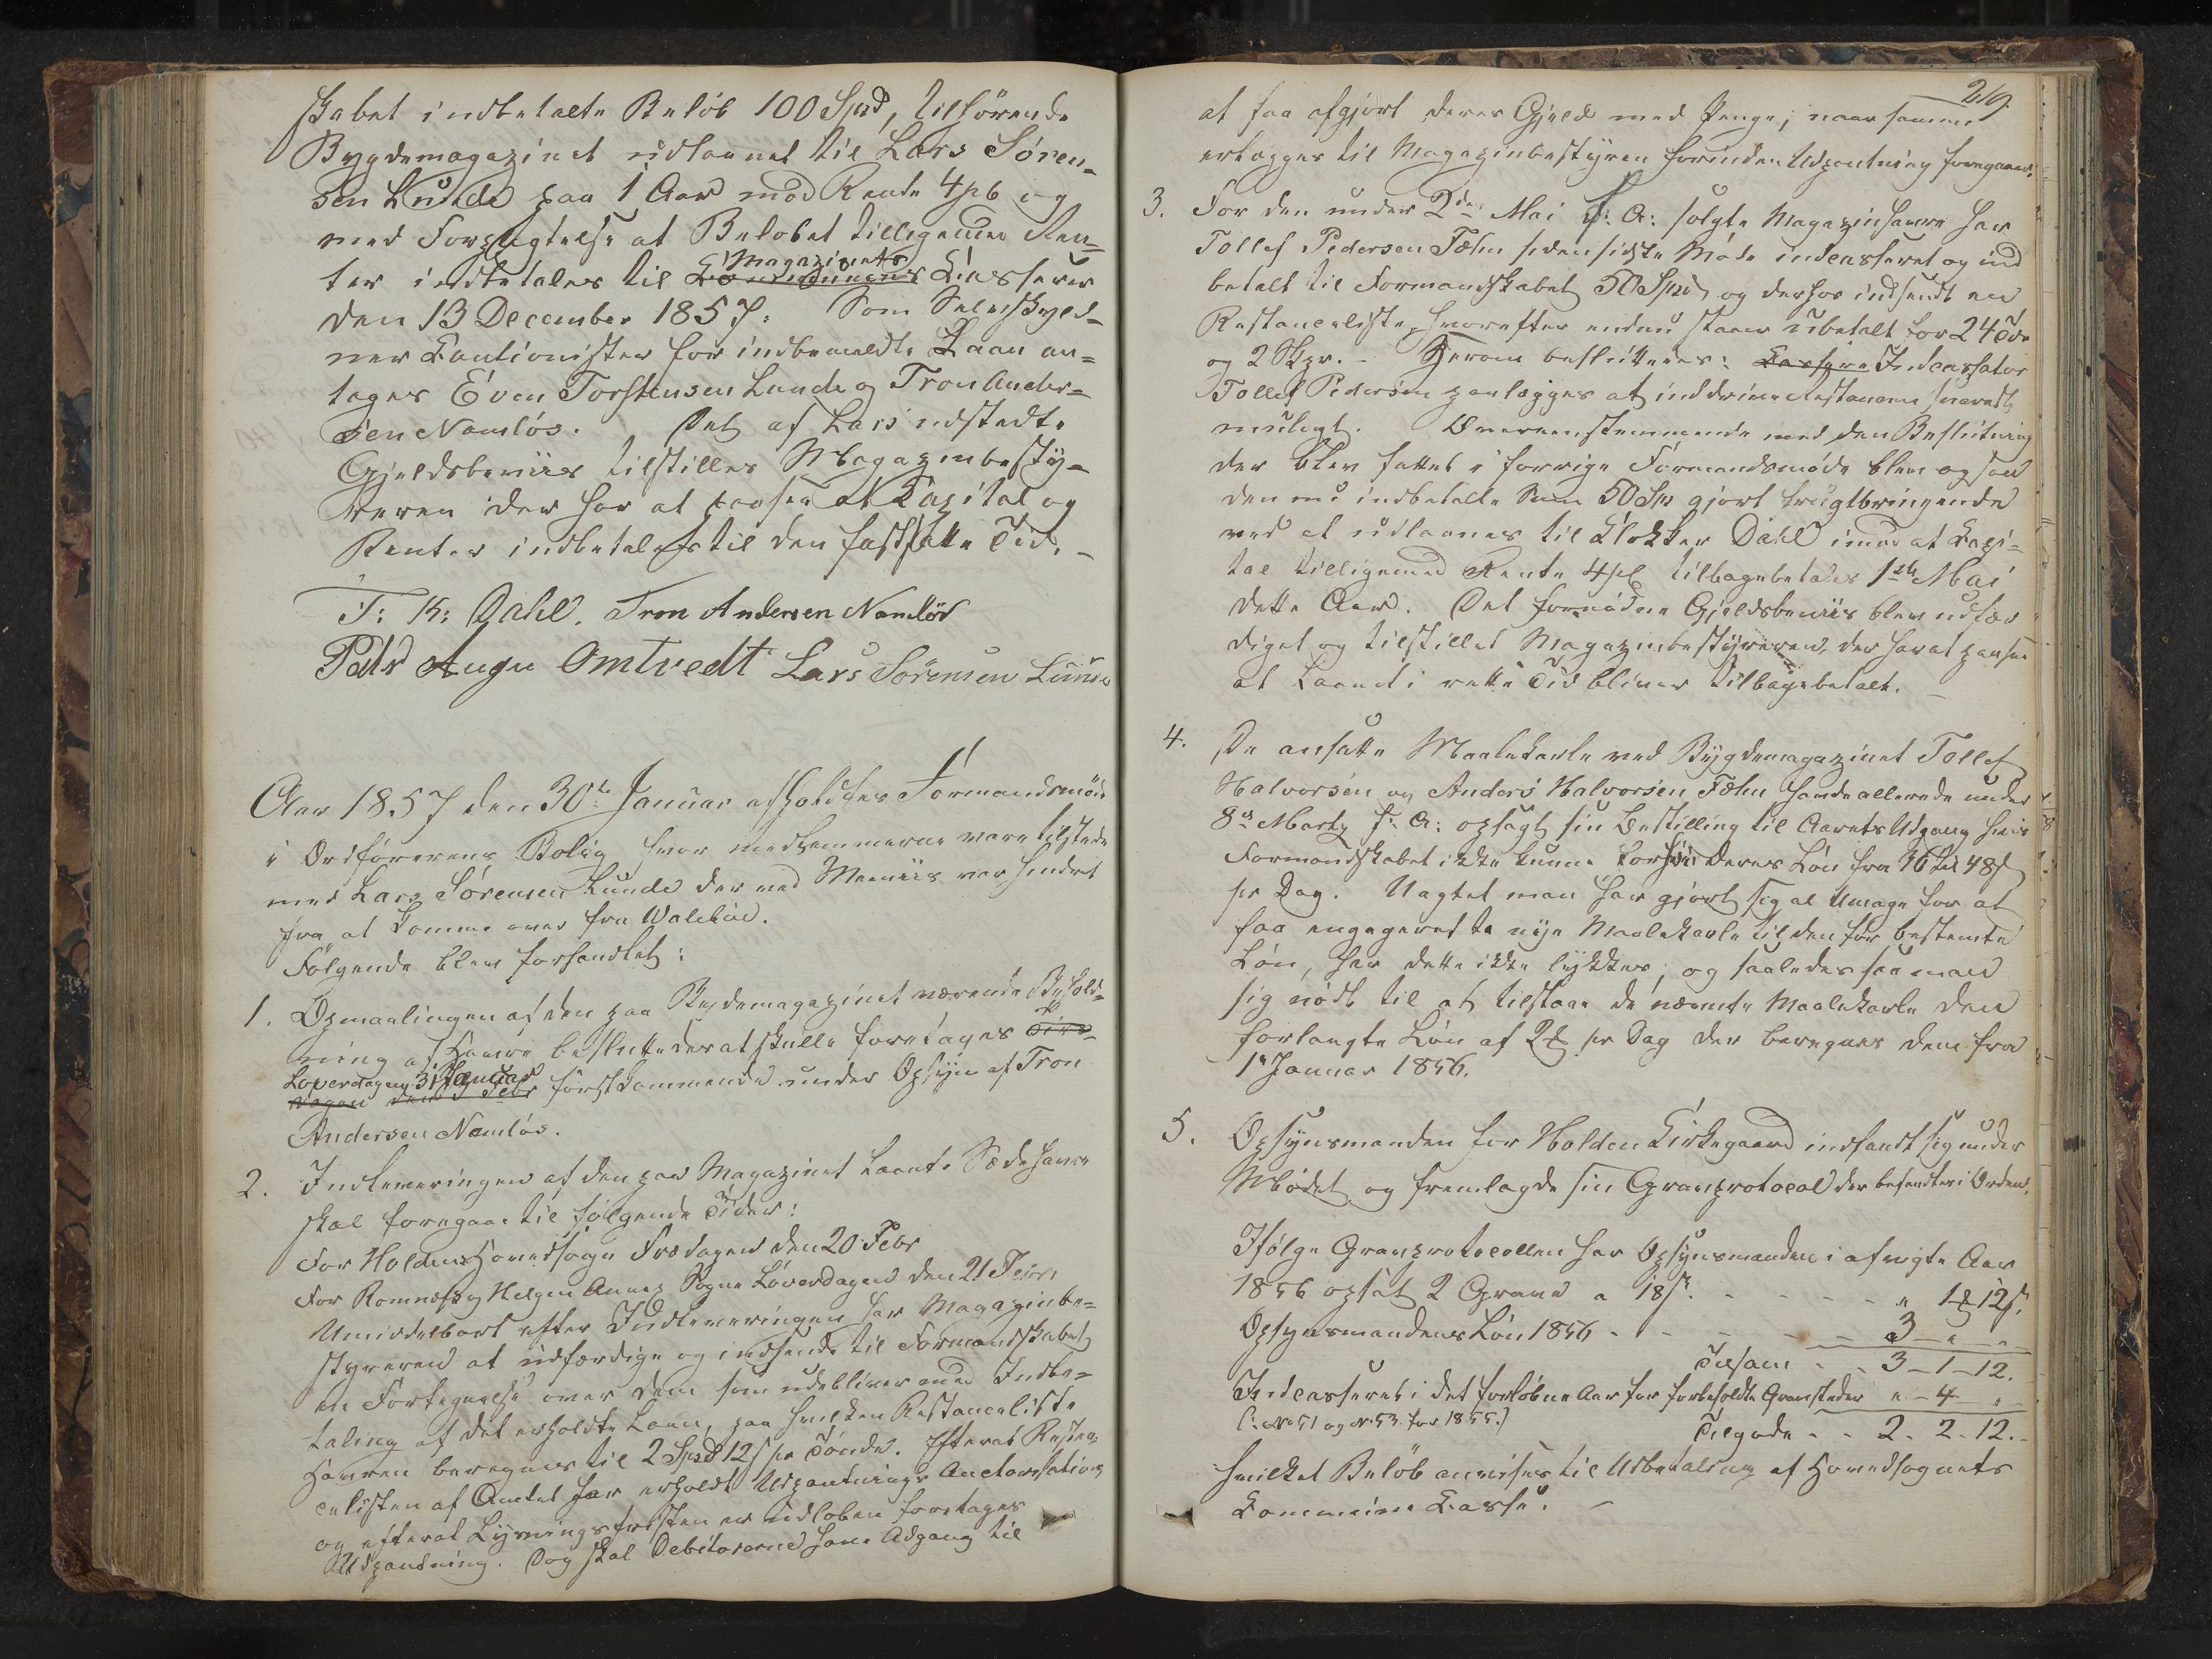 skabet indbetalte Beløb 100 Spd, tilhørende
Bygdemagazinet udlaanet til Lars Søren-
sen Lunde paa 1 Aar mod Rente 4 pC og
med Forpligtelse at Beløbet tilligemed Ren-
ter indbetales til Communens Magazinets Casserer
den 13 December 1857. Som Selvskyld-
ner Cautionister for indbemeldte Laan an-
tages Even Torstensen Lunde og Tron Ander-
sen Namløs. Det af Lars udstedte
Gjeldsbeviis tilstilles Magazinbesty-
reren der har at paasee at Capital og
Renter indbetales til den fastsatte Tid. -
T: K: Dahl. Tron Andersen Namløs
Peder Aagn Omtvedt Lars Sørensen Lunde
Aar 1857 den 30te Januar afholdtes Formandsmøde
i Ordførerens Bolig hvor medlemmerne vare tilstede
med Lars Sørensen Lunde der ved Meniis var hindret
fra at komme over fra Valebø.
Følgende blev forhandlet:
1. Opmaalingen af den paa Bygdemagazinet værende Behold-
ning af Havre besluttedes at skulle foretages Tirs-
dagen den 3 Febr Løverdagen 31 Januar førstkommende under Opsyn af Tron
Andersen Namløs.
2. Indleveringen af den paa Magazinet laante Sædehavre
skal foregaae til følgende Tider:
For Holdens Hovedsogn Fredagen den 20 Febr
For Romnæs og Helgen Annex Sogne Løverdagen den 21 Febr.
Umiddelbart efter Indleveringen har Magazinbe-
styreren at udfærdige og indsende til Formandskabet
en Fortegnelse over dem som udebliver med Indbe-
taling af det erholdte Laan, paa hvilken Restanceliste
Havren beregnes til 2 Spd 12 s pr Tønde. Efterat Restan-
celisten af Amtet har erholdt Udpantnings Auctorisation
og efterat Lysningsfristen er udløben foretages
Udpantning. Dog skal Debitorerne have Adgang til
219.
at faa afgjort deres Gjeld med Penge, naar samme
erlægges til Magazinbestyreren forinden Udpantning foregaaer.
3. For den under 2den Mai f: A: solgte Magazinhavre har
Tollef Pedersen Fæhn siden sidste Møde indcasseret og ind
betalt til Formandskabet 50 Spd og derhos indsendt en
Restanceliste, hvorefter endnu staaer ubetalt for 24 Tdr
og 2 Skpr. - Herom besluttedes: Indcassator
Tollef Pedersen paalægges at inddrive Restancerne snarest
muligt. Overeenstemmende med den Beslutning
der blev fattet i forrige Formandsmøde blev ogsaa
den nu indbetalte Sum 50 Spd gjort frugtbringende
ved at udlaanes til Klokker Dahl imod at Capi-
tal tilligemed Rente 4 pC tilbagebetales 1ste Mai
dette Aar. Det fornødne Gjeldsbeviis blev udfær
diget og tilstillet Magazinbestyreren, der har at paasee
at Laanet i rette Tid bliver tilbagebetalt. -
4. De ansatte Maalekarle ved Bygdemagazinet Tollef
Halvorsen og Anders Halvorsen Fæhn havde allerede under
8de Marts f: A: opsagt sin Bestilling til Aarets Udgang hvis
Formandskabet ikke kunne forhøie deres Løn fra 36 til 48 s
pr Dag. Uagtet man har gjort sig al Umage for at
faa engageret to nye Maalekarle til den før bestemte
Løn, har dette ikke lykkes, og saaledes saa man
sig nødt til at tilstaae de nævnte Maalekarle den
forlangte Løn af 2 # pr Dag der beregnes dem fra
1e Januar 1856.
5. Opsynsmanden for Holden Kirkegaard indfandt sig under
Mødet og fremlagde sin Gravprotocol der befandtes i Orden.
Ifølge Gravprotocollen har Opsynsmanden i afvigte Aar
1856 opsat 2 Grave a 18 s. - - - - - " 1 # 12 s.
Opsynsmandens Løn 1856 - - - - - 3 - " - "
Tilsam - - 3 - 1 - 12.
Indcasseret i det forløbne Aar for forbeholdte Gravsteder " - 4 - "
(: No 51 og No 53 for 1855.)
Tilgode - - 2 - 2 - 12.
hvilket Beløb anvises til Udbetaling af Hovedsognets
Commune Casse. -